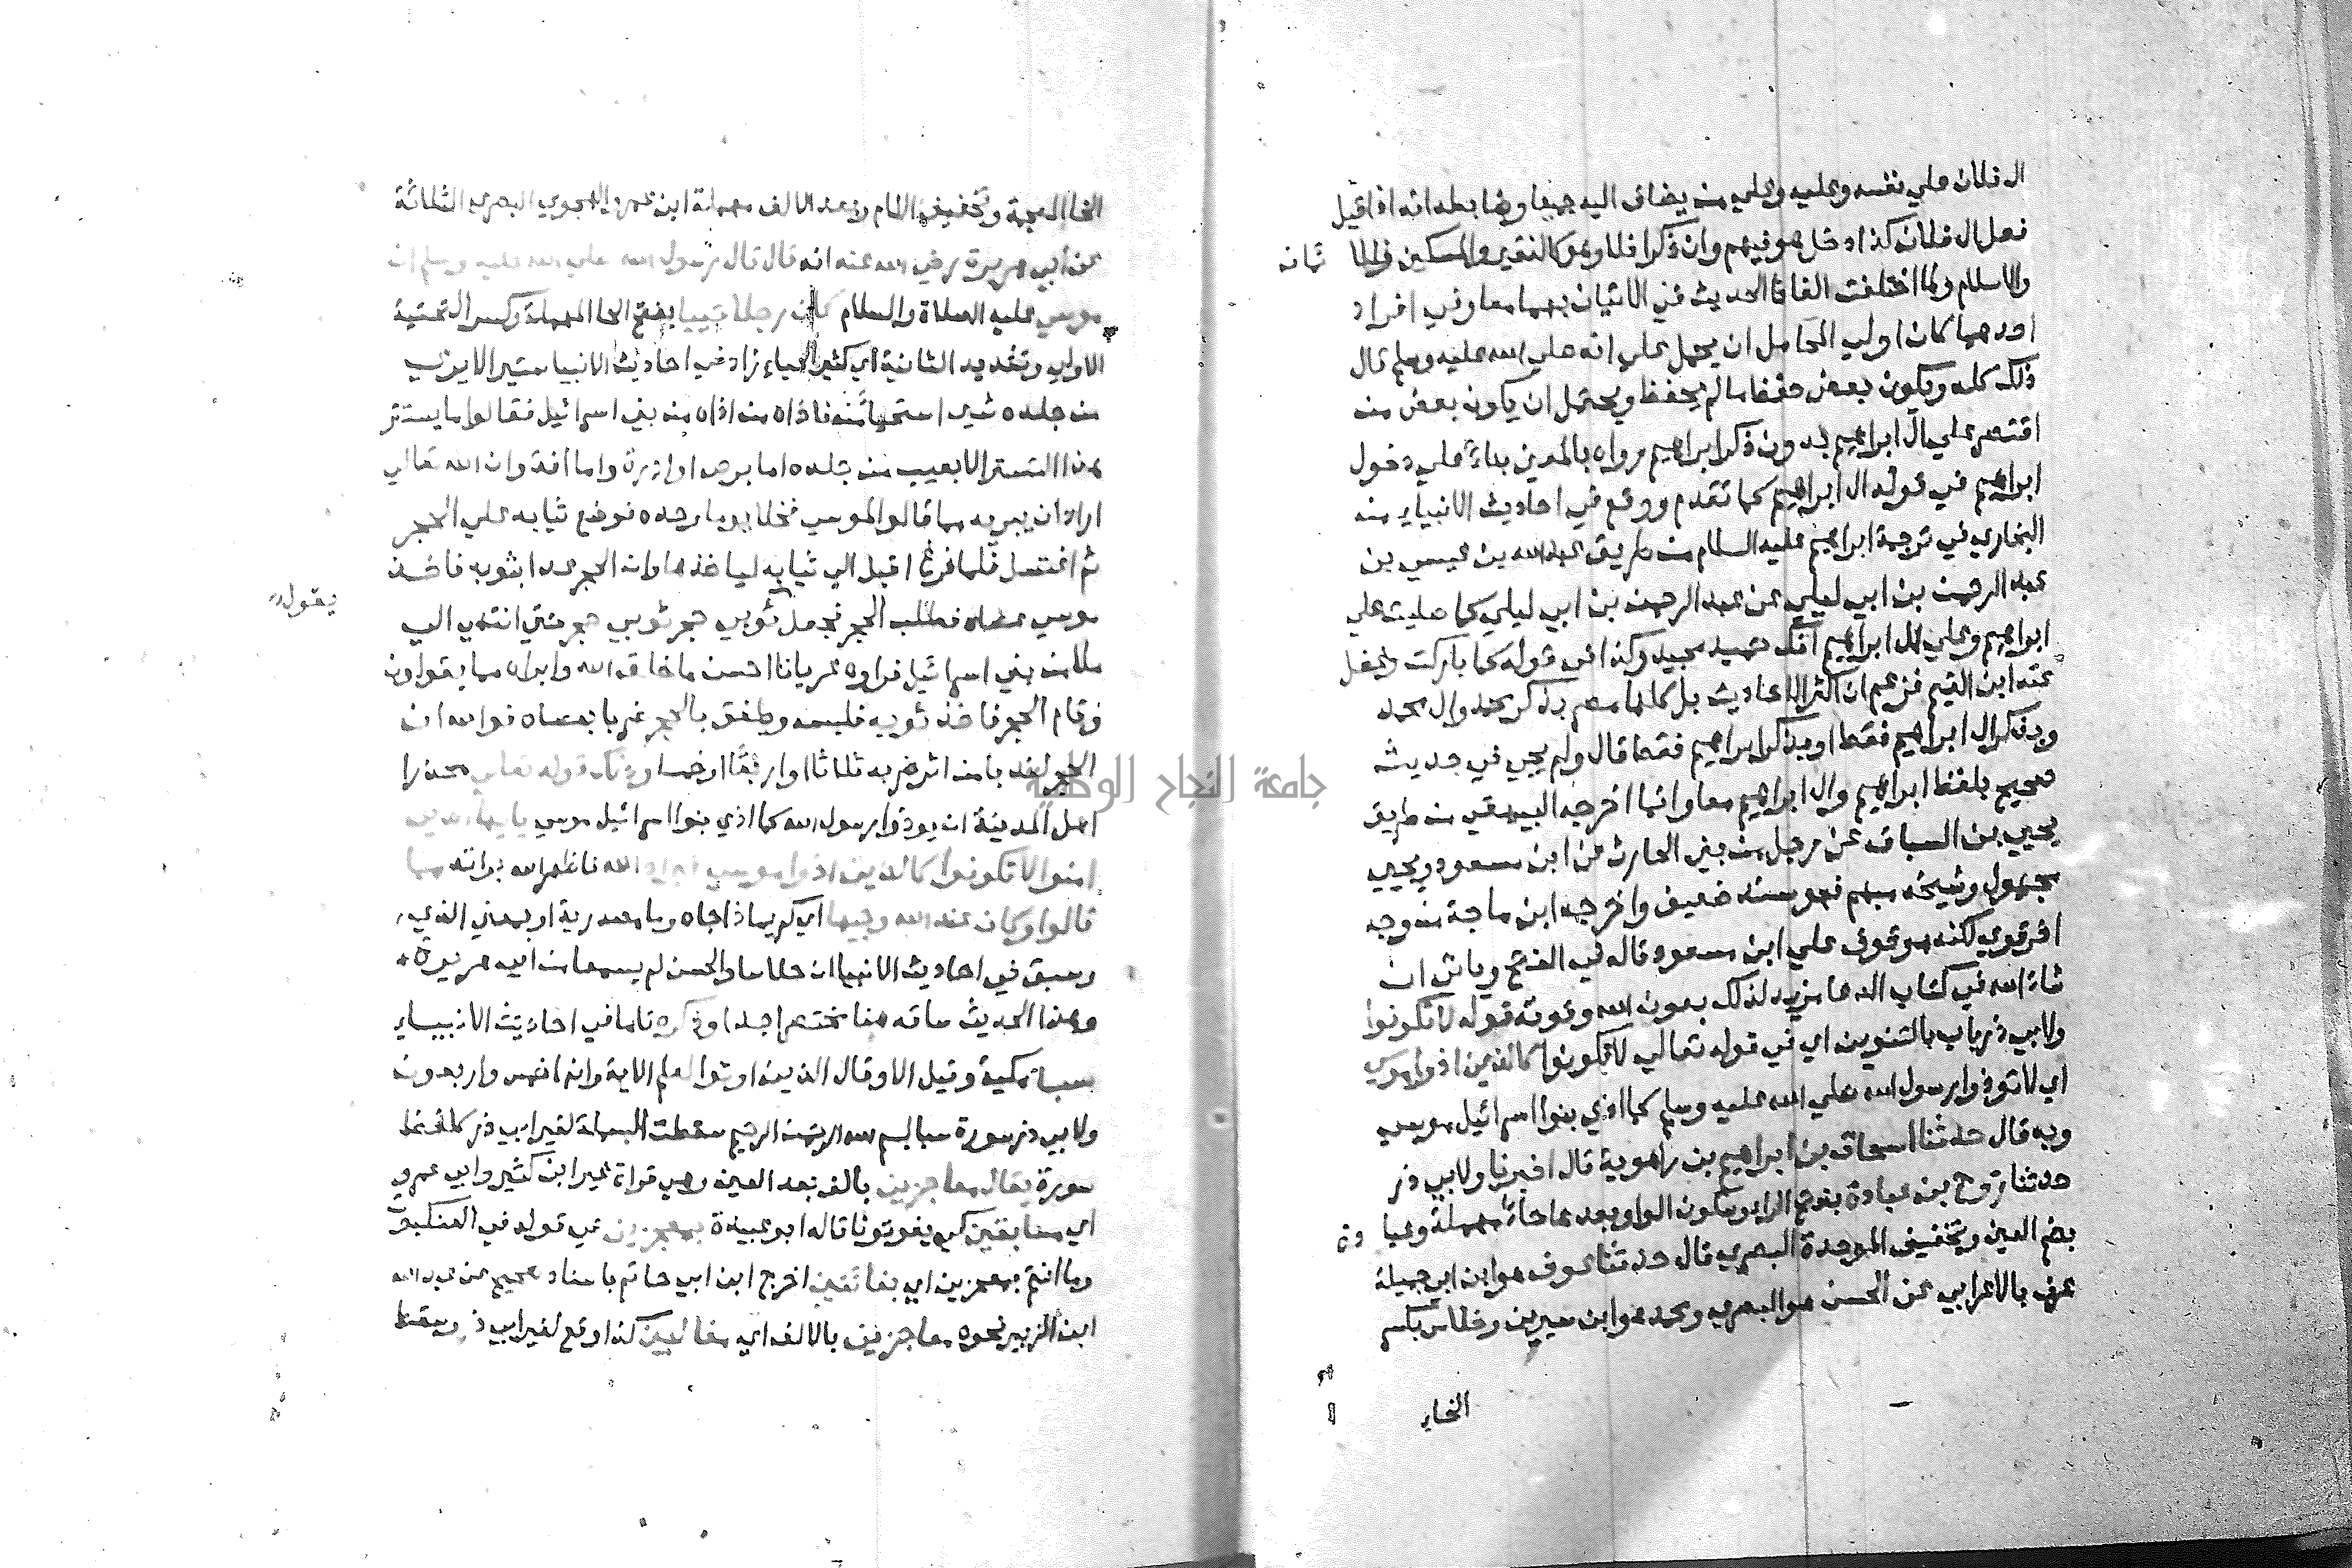 ال فلان علي نفسه وعليه وعلي من يضاف اليه جميعا وضابطه انه اذا قيل
فعل ال فلان كذا دخل هو فيهم وان ذكرا فلا وهو كالفقير والمسكين والايمان
والاسلام ولما اختلفت الفاظ الحديث في الاتيان بهما معا وفي افراد
احدهما كان اولي المحامل ان يحمل علي انه صلي الله عليه وسلم قال
ذلك كله ويكون بعض حفظ ما لم يحفظ ويحتمل ان يكون بعض من
اقتصر علي ال ابراهيم بدون ذكر ابراهيم رواه بالمعني بناء علي دخول
ابراهيم في قوله ال ابراهيم كما تقدم ووقع في احاديث الانبياء من
البخاري في ترجمة ابراهيم عليه السلام من طريق عبد الله بن عيسي بن
عبد الرحمن بن ابي ليلي عن عبد الرحمن بن ابي ليلي كما صليت علي
ابراهيم وعلي ال ابراهيم انك حميد مجيد وكذا في قوله كما باركت وغفل
عنه ابن القيم فزعم ان اكثر الاحاديث بل كلها مصرح بذكر محمد وال محمد
وبذكر ال ابراهيم فقط او بذكر ابراهيم فقط قال ولم يجي في حديث
صحيح بلفظ ابراهيم وال ابراهيم معا وانما اخرجه البيهقي من طريق
يحيي بن السباق عن رجل من بني الحارث عن ابن مسعود ويحيي
مجهول وشيخه مبهم فهو سند ضعيف واخرجه ابن ماجة من وجه
اخر قوي لكنه موقوف علي ابن مسعود قاله في الفتح وياتي ان
شاء الله في كتاب الدعا مزيد لذلك بعون الله وقوته قوله لا تكونوا
ولابي ذر باب بالتنوين اي في قوله تعالي لا تكونوا كالذين اذوا موسي
اي لا توذوا رسول الله صلي الله عليه وسلم كما اذي بنوا اسرائيل موسي
وبه قال حدثنا اسحاق بن ابراهيم بن راهوية قال اخبرنا ولابي ذر
حدثنا روح بن عبادة بفتح الراء وسكون الواو بعدها حاء مهملة وعبادة
بضم العين وتخفيف الموحدة البصري قال حدثنا عوف هو ابن ابي جميلة
عرف بالاعرابي عن الحسن هو البصري ومحمد هو ابن سيرين وخلاس بكسر
الخاء
الخا المعجمة وتخفيف اللام وبعد الالف مهملة ابن عمرو الهجري البصري الثلاثة
عن ابي هريرة رضي الله عنه انه قال قال رسول الله صلي الله عليه وسلم ان
موسي عليه الصلاة والسلام كان رجلا حييا بفتح الحا المهملة وكسر التحتية
الاولي وتشديد الثانية اي كثير الحياء زاد في احاديث الانبيا ستيرا لا يري
من جلده شي استحياء منه فاذاه من اذاه من بني اسرائيل فقالوا ما يستتر
هذا التستر الا بعيب من جلده اما برص او ادرة واما افة وان الله تعالي
اراد ان يبريه مما قالوا لموسي فخلا يوما وحده فوضع ثيابه علي الحجر
ثم اغتسل فلما فرغ اقبل الي ثيابه لياخذها وان الحجر عدا بثوبه فاخذ
موسي عصاه فطلب الحجر فجعل يقول ثوبي حجر ثوبي حجر حتي انتهي الي
ملا من بني اسرائيل فراوه عريانا احسن ما خلق الله وابراه مما يقولون
وقام الحجر فاخذ ثوبه فلبسه وطفق بالحجر ضربا بعصاه فوالله ان
بالحجر لندبا من اثر ضربه ثلاثا او اربعا او خمسا وذلك قوله تعالي محذرا
اهل المدينة ان يوذوا رسول الله كما اذي بنوا اسرائيل موسي يا ايها الذين
امنوا لا تكونوا كالذين اذوا موسي فبراه الله فاظهر الله براته مما
قالوا وكان عند الله وجيها اي كريما ذا جاه وما مصدرية او بمعني الذي
وسبق في احاديث الانبيا ان خلاسا والحسن لم يسمعا من ابي هريرة
وهذا الحديث ساقه هنا مختصرا جدا وذكره تاما في احاديث الانبياء
سبا مكية وقيل الا وقال الذين اوتوا العلم الاية وايها خمس واربعون
ولابي ذر سورة سبا بسم الله الرحمن الرحيم سقطت البسملة لغير ابي ذر كلفظ
سورة يقال معاجزين بالف بعد العين وهي قراة غير ابن كثير وابي عمرو
اي مسابقين كي يفوتونا قاله ابو عبيدة بمعجزين في قوله في العنكبوت
وما انتم بمعجزين اي بفائتين اخرج ابن ابي حاتم باسناد صحيح عن عبد الله
ابن الزبير نحوه معاجزين بالالف اي مغالبين كذا وقع لغير ابي ذر وسقط
جامعة النجاح الوطنية